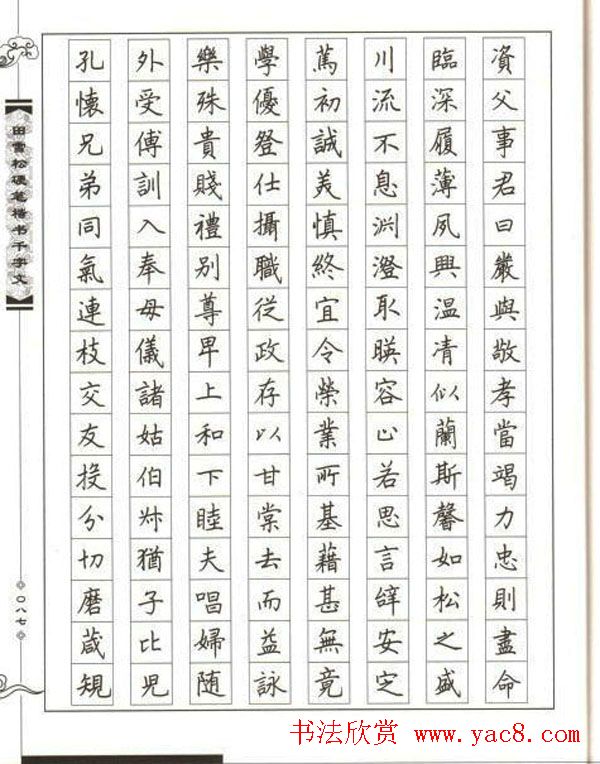 資父事君曰嚴與敬孝當竭力忠則盡命
臨深履薄夙興温凊似蘭斯馨如松之盛
川流不息渊澄取暎容止若思言辝安定
篤初誠美慎終宜令榮業所基藉甚無竟
學優登仕攝職從政存以甘棠去而益詠
樂殊貴賤禮别尊卑上和下睦夫唱婦随
外受傅訓入奉母儀諸姑伯叔猶子比兒
孔懷兄弟同氣連枝交友投分切磨葴規
【田雪松硬笔楷书千字文】
〇八七
书法欣赏 www.yac8.com